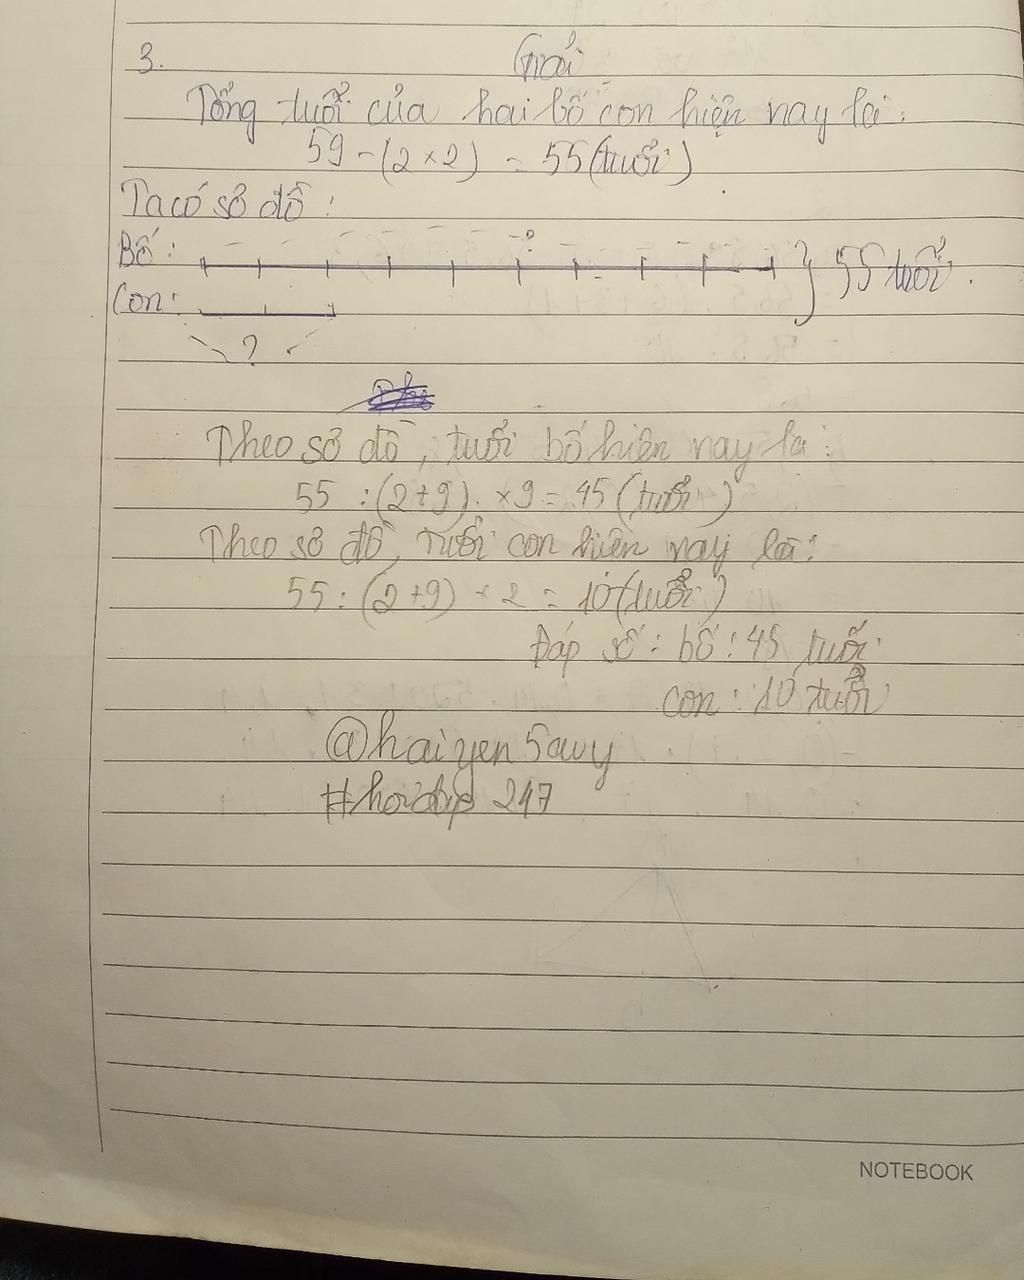 3. Giải
Tổng tuổi của hai bố con hiện nay là:
59 - (2 × 2) = 55 (tuổi)
Ta có sơ đồ:
?
Bố: 55 tuổi.
Con:
?
Theo sơ đồ, tuổi bố hiện nay là:
55 : (2+9) × 9 = 45 (tuổi)
Theo sơ đồ, tuổi con hiện nay là:
55 : (2+9) × 2 = 10 (tuổi)
Đáp số: bố: 45 tuổi
con: 10 tuổi
@haiyen5avy
#hoidap 247
NOTEBOOK